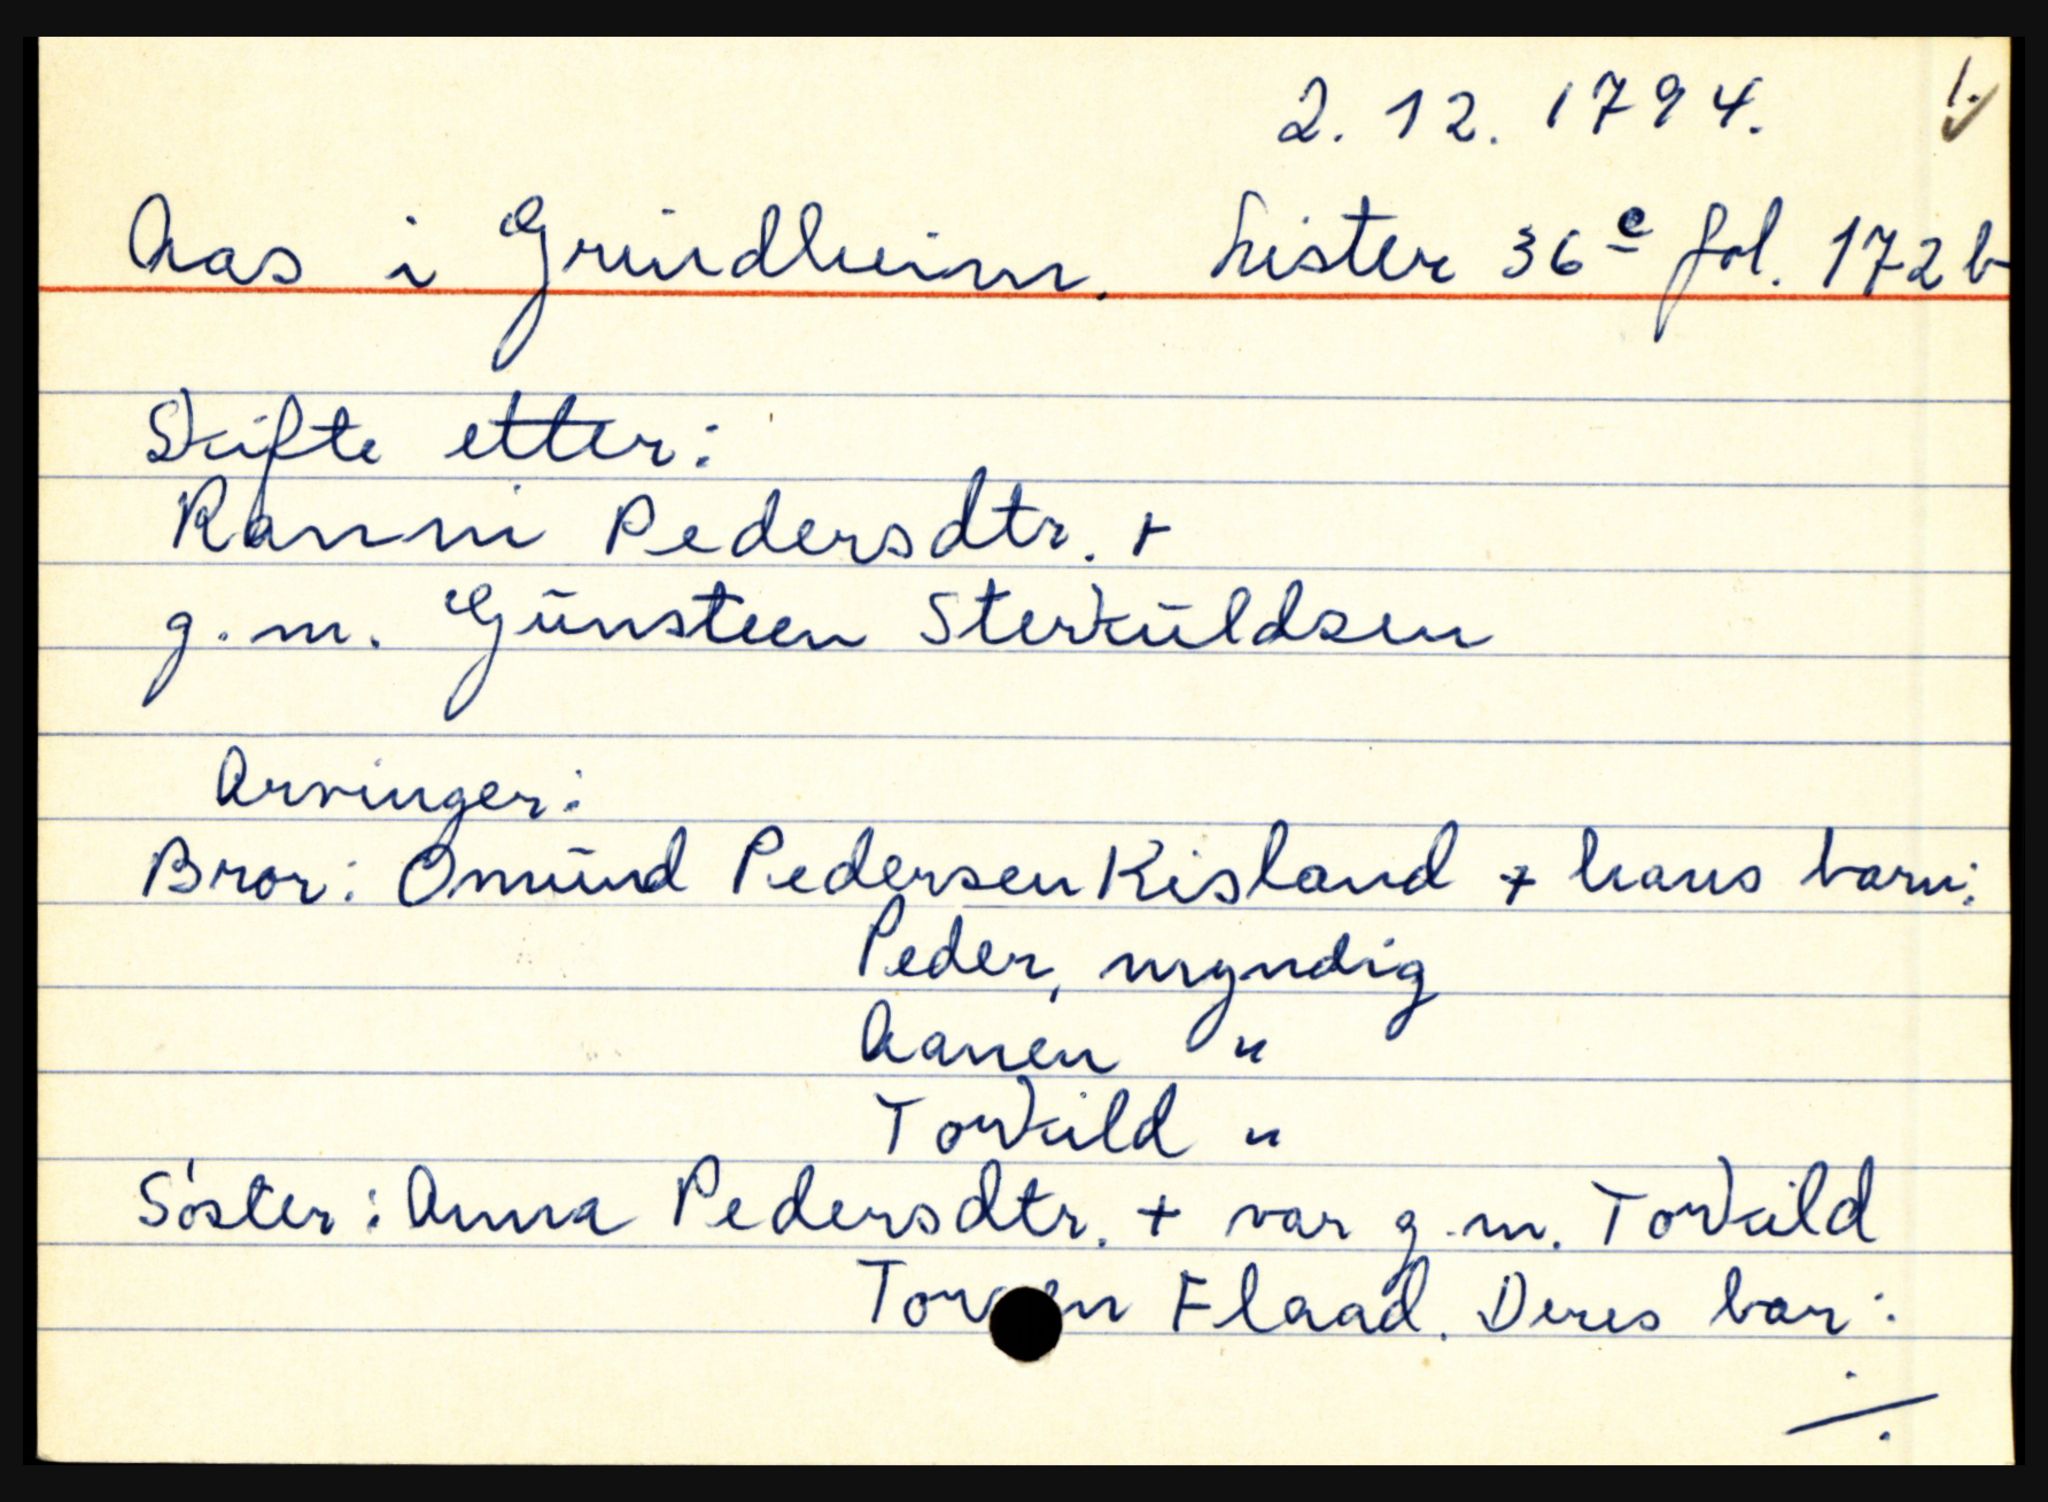 2. 12. 1794. 1.
Aas i Grindheim. Lister 36c fol. 172b
Skifte etter:
Ranni Pedersdtr. +
g. m. Gūnsteen Sterkūldsen
Arvinger:
Bror: Omūnd Pedersen Kisland + hans barn:
Peder, myndig
Aanen "
Torkild "
Søster: Anna Pedersdtr. + var g. m. Torkild
Flaad. Deres bar:
./.